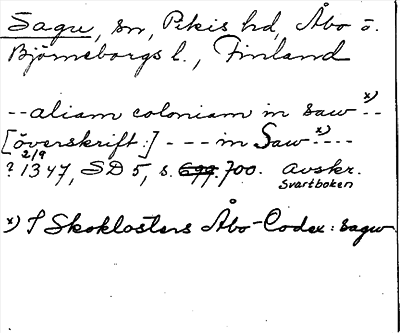 Sagu, sn, Pikis hd, Åbo o.
Björneborgs l., Finland
--aliam coloniam in saw x)--
[överskrift:] --- in Saw x)----
? 2/9 1347, SD 5, s. 699. 700. avskr.
Svartboken
x) I Skoklosters Åbo-Codex: sagw